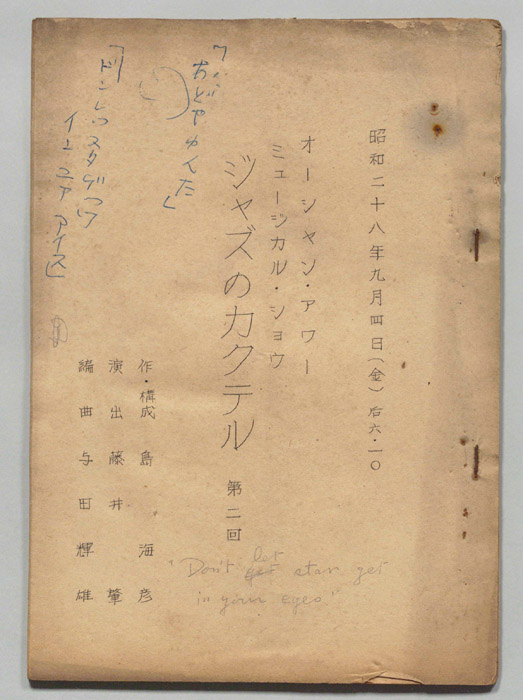 昭和二十八年九月四日(金)后六・一〇
オーシャン・アワー
ミュージカル・ショウ
ジャズのカクテル 第二回
作・構成 島海彦
演出 藤井肇
編曲 与田輝雄
ドンレツスタゲッツ
イン ユア アイス」
"Don't let get stars get
in your eyes"